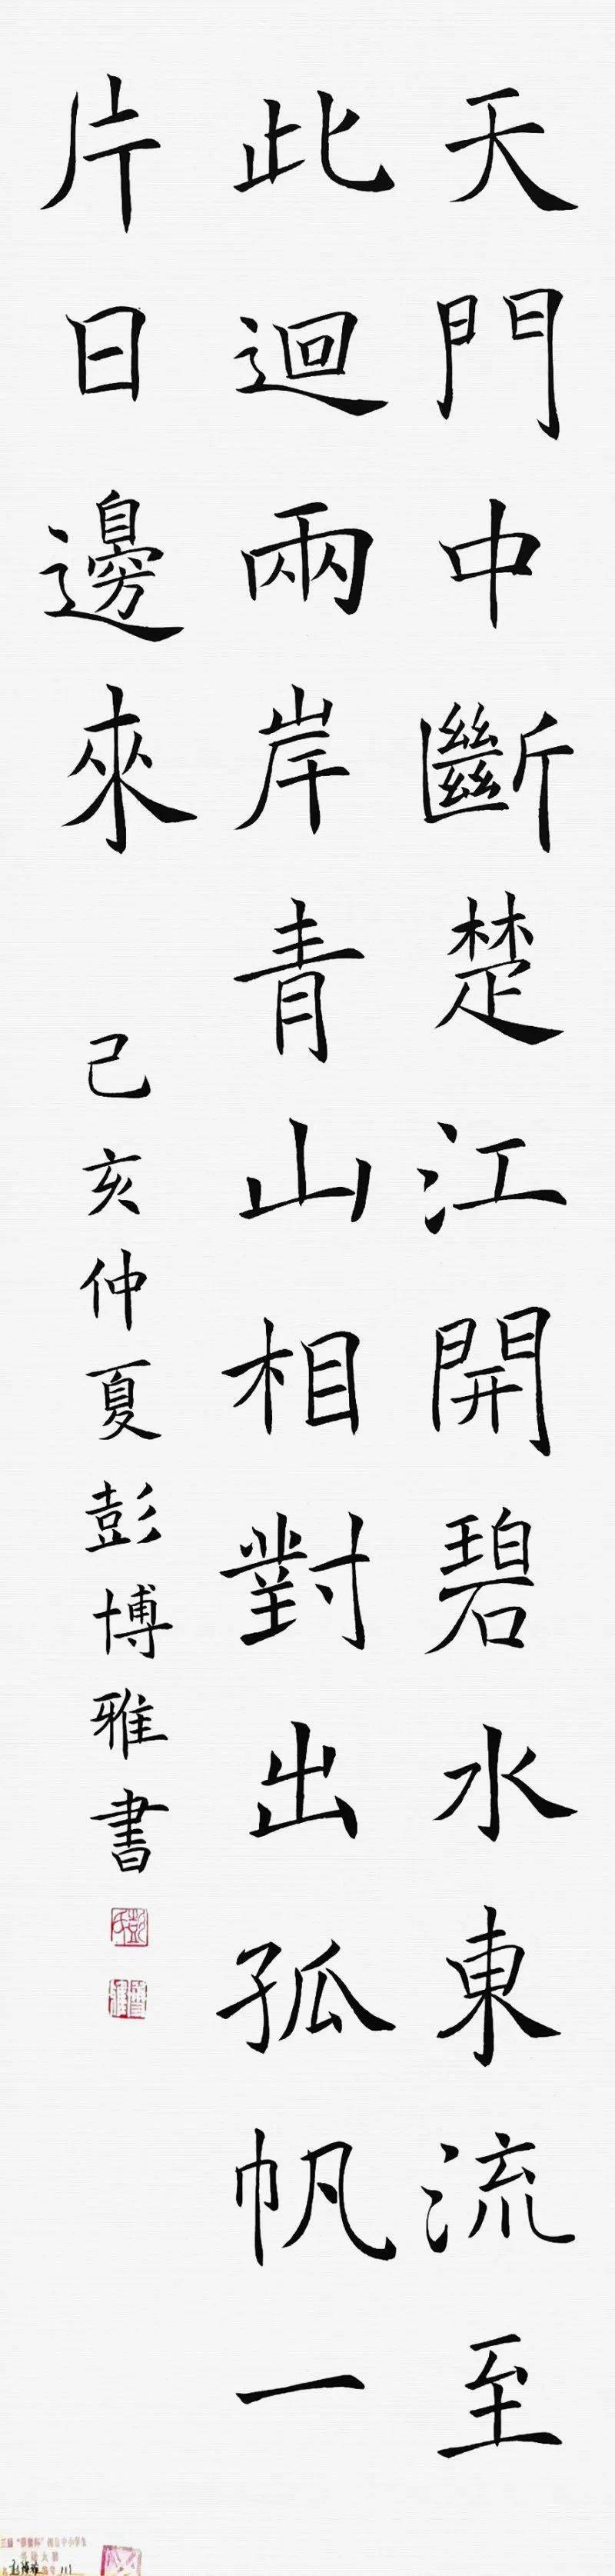 天門中斷楚江開碧水東流至
此迴兩岸青山相對出孤帆一
片日邊來
己亥仲夏彭博雅書